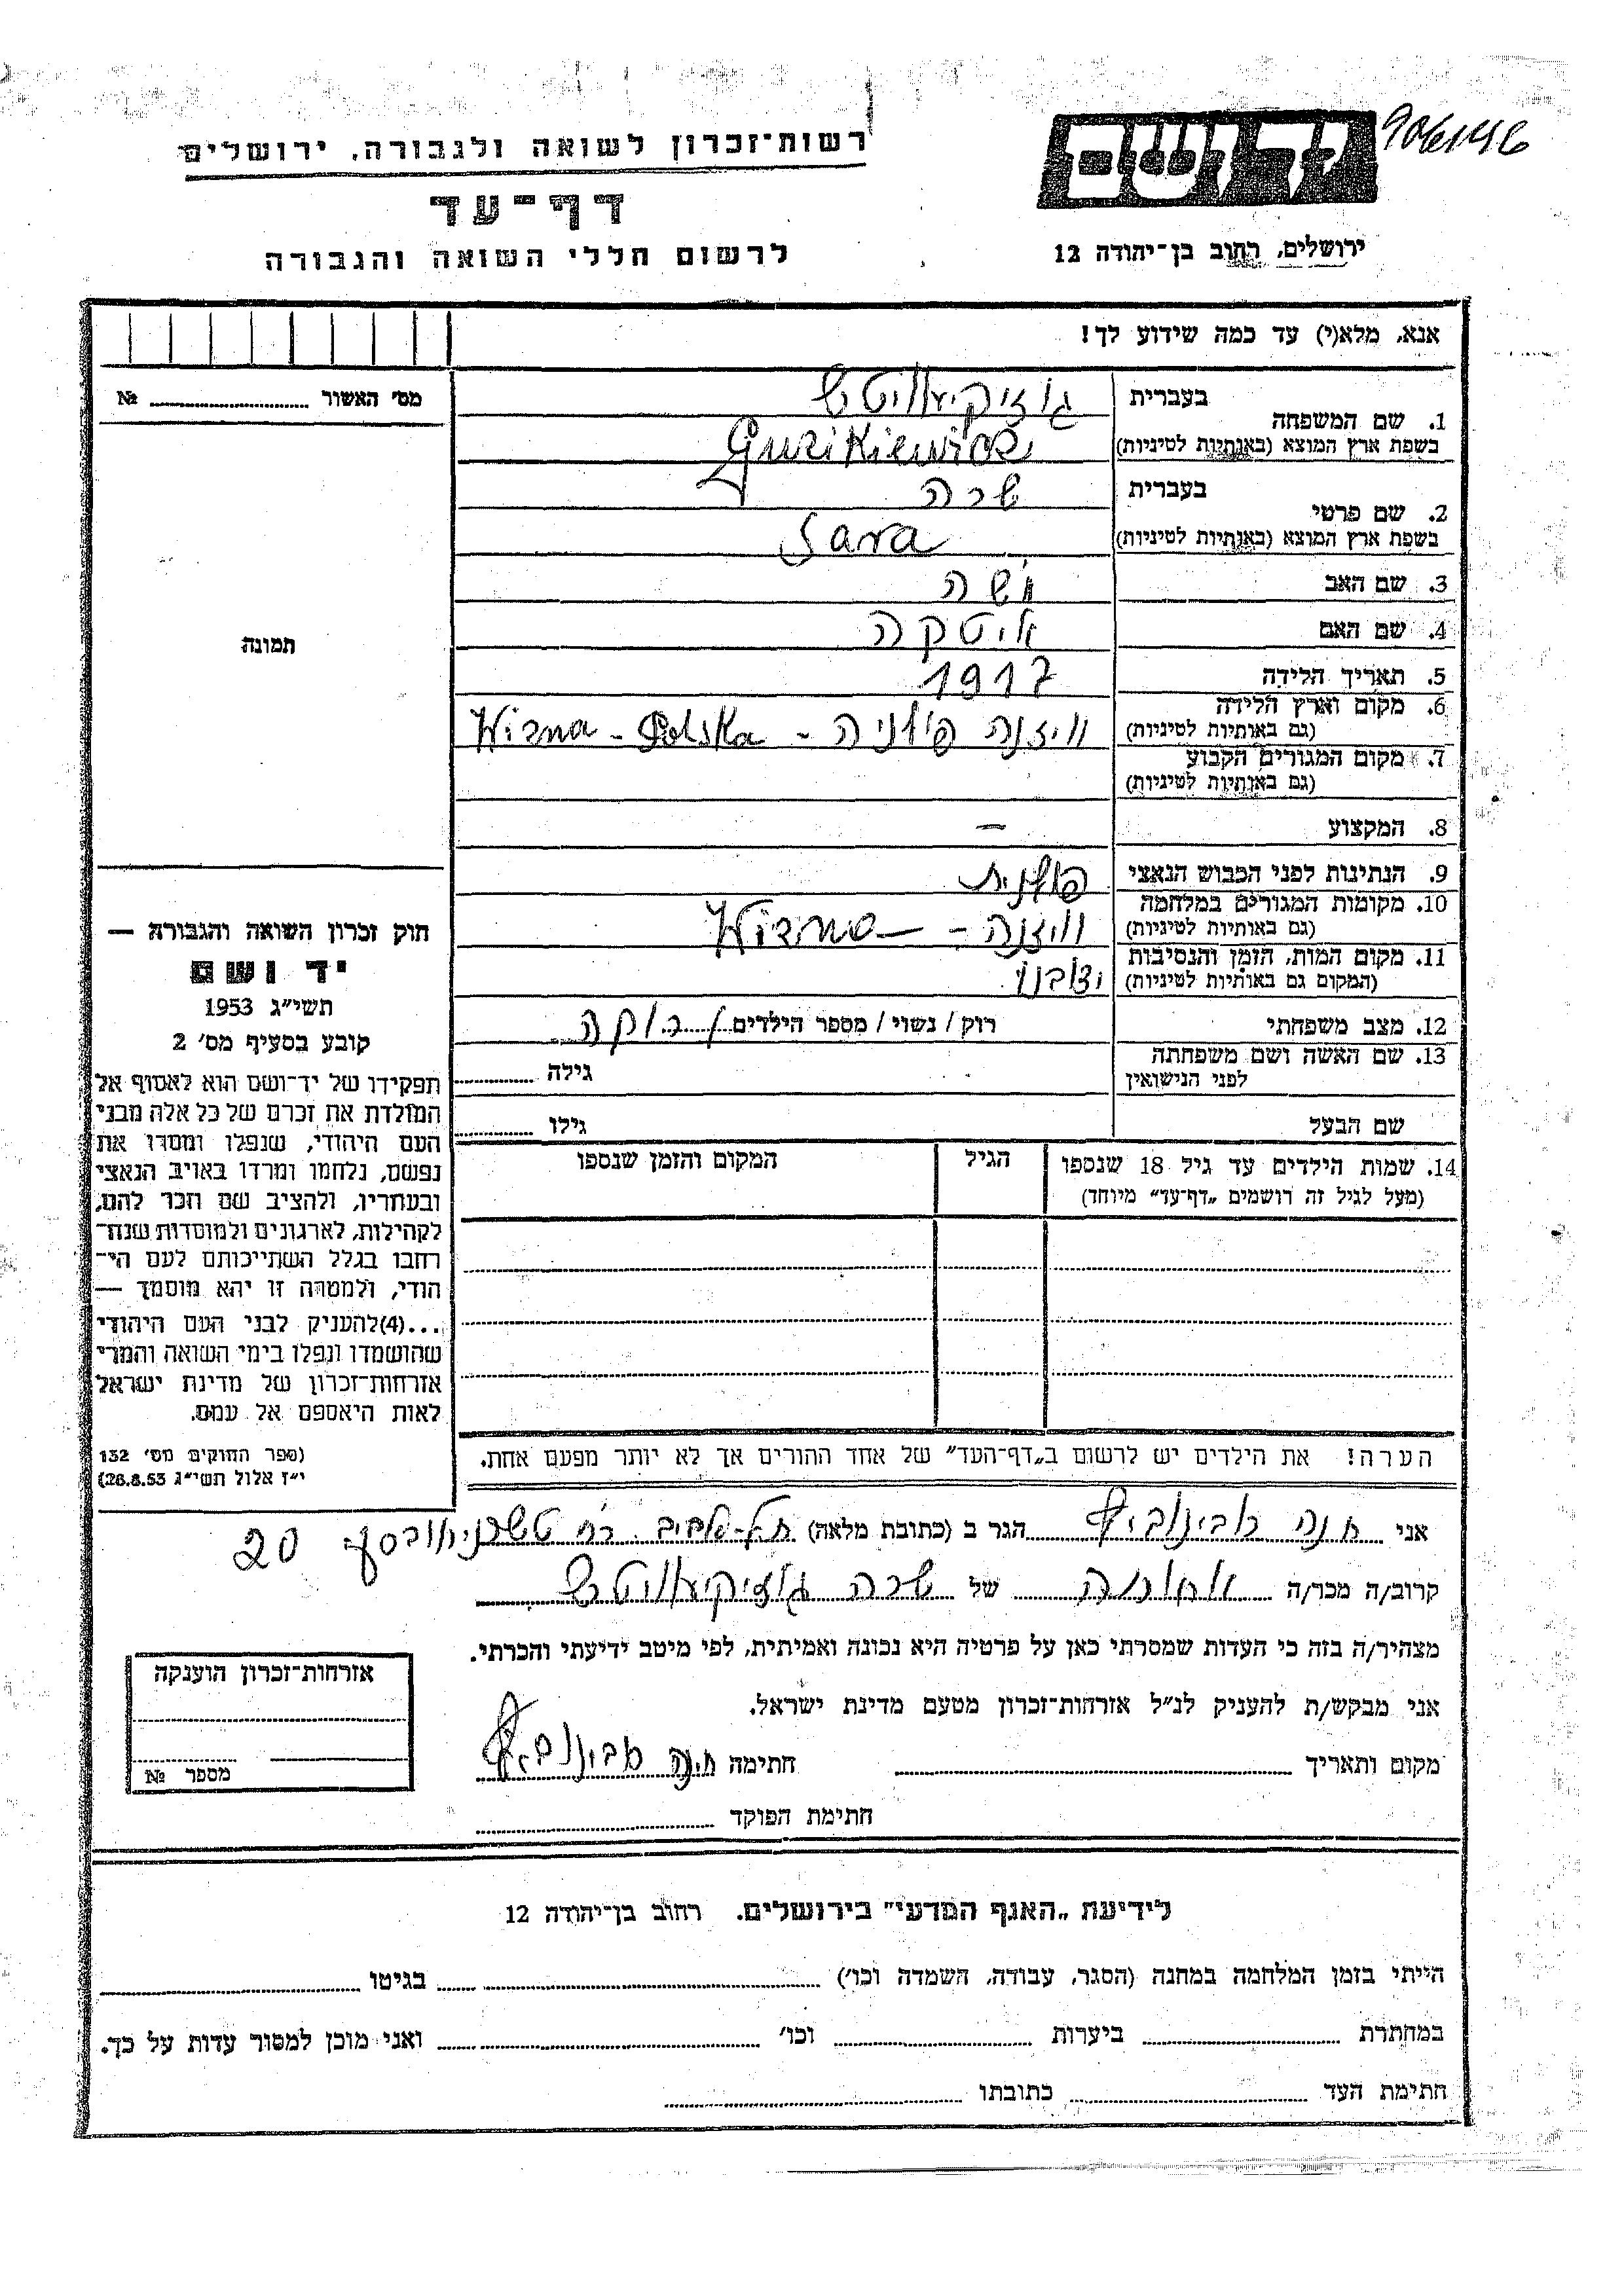 רשות־זכרון לשואה ולגבורה, ירושלים
דף־עד
לרשום חללי השואה והגבורה
יד ושם
ירושלים, רחוב בן־יהודה 12
אנא, מלא(י) עד כמה שידוע לך!
מס' האשור № 
תמונה
1. שם המשפחה בעברית גוזיקיאוויטש
בשפת ארץ המוצא (באותיות לטיניות) Guzikiewicz
2. שם פרטי בעברית שרה
בשפת ארץ המוצא (באותיות לטיניות) Sara
3. שם האב משה
4. שם האם איטקה
5. תאריך הלידה 1917
6. מקום וארץ הלידה (גם באותיות לטיניות) וויזנה פולניה - Wizna - Polska
7. מקום המגורים הקבוע (גם באותיות לטיניות)
8. המקצוע —
9. הנתינות לפני הכבוש הנאצי פולנית
10. מקומות המגורים במלחמה (גם באותיות לטיניות) וויזנה - Wizna
11. מקום המות, הזמן והנסיבות (המקום גם באותיות לטיניות)
12. מצב משפחתי רוק / נשוי / מספר הילדים רוקה
13. שם האשה ושם משפחתה לפני הנישואין גילה
שם הבעל גילו
14. שמות הילדים עד גיל 18 שנספו הגיל המקום והזמן שנספו
(מעל לגיל זה רושמים „דף־עד" מיוחד)
הערה! את הילדים יש לרשום ב„דף־העד" של אחד ההורים אך לא יותר מפעם אחת.
חוק זכרון השואה והגבורה —
יד ושם
תשי"ג 1953
קובע בסעיף מס' 2
תפקידו של יד־ושם הוא לאסוף אל
המולדת את זכרם של כל אלה מבני
העם היהודי, שנפלו ומסרו את
נפשם, נלחמו ומרדו באויב הנאצי
ובעוזריו, ולהציב שם וזכר להם,
לקהילות, לארגונים ולמוסדות שנח־
רחבו בגלל השתייכותם לעם הי־
הודי, ולמטרה זו יהא מוסמך —
...(4)להעניק לבני העם היהודי
שהושמדו ונפלו בימי השואה והמרי
אזרחות־זכרון של מדינת ישראל
לאות היאספם אל עמם.
(ספר החוקים מס' 132
י"ז אלול תשי"ג 28.8.53)
אני חנה רבינוביץ הגר ב (כתובת מלאה) תל-אביב רח' 20
קרוב/ה מכר/ה של שרה גוזיקיאוויטש
מצהיר/ה בזה כי העדות שמסרתי כאן על פרטיה היא נכונה ואמיתית, לפי מיטב ידיעתי והכרתי.
אני מבקש/ת להעניק לנ"ל אזרחות־זכרון מטעם מדינת ישראל.
מקום ותאריך חתימה חנה רבינוביץ
חתימת הפוקד
אזרחות־זכרון הוענקה
מספר №
לידיעת „האגף המדעי" בירושלים. רחוב בן־יהודה 12
הייתי בזמן המלחמה במחנה (הסגר, עבודה, השמדה וכו') בגיטו
במחתרת ביערות וכו' ואני מוכן למסור עדות על כך.
חתימת העד כתובתו